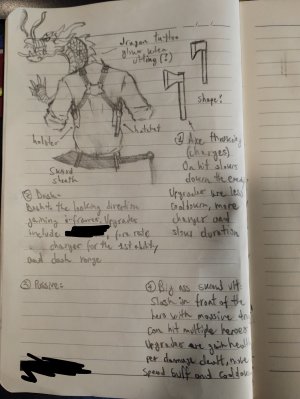 dragon tattoo
glows when
ulting (!)
shape:
holster
hatchet
sword
sheath
① Axe throwing
(charges)
On hit slows
down the enemy
Upgrades are less
cooldown, more
charges and
slow duration
② Dash:
Dash to the looking direction
gaining i-frames. Upgrades
include fire rate
charges for the 1st ability
and dash range
③ Passive:
④ Big ass sword ult:
Slash in front of the
hero with massive
can hit multiple heroes
Upgrades are gain health
per damage dealt, move
speed buff and cooldown